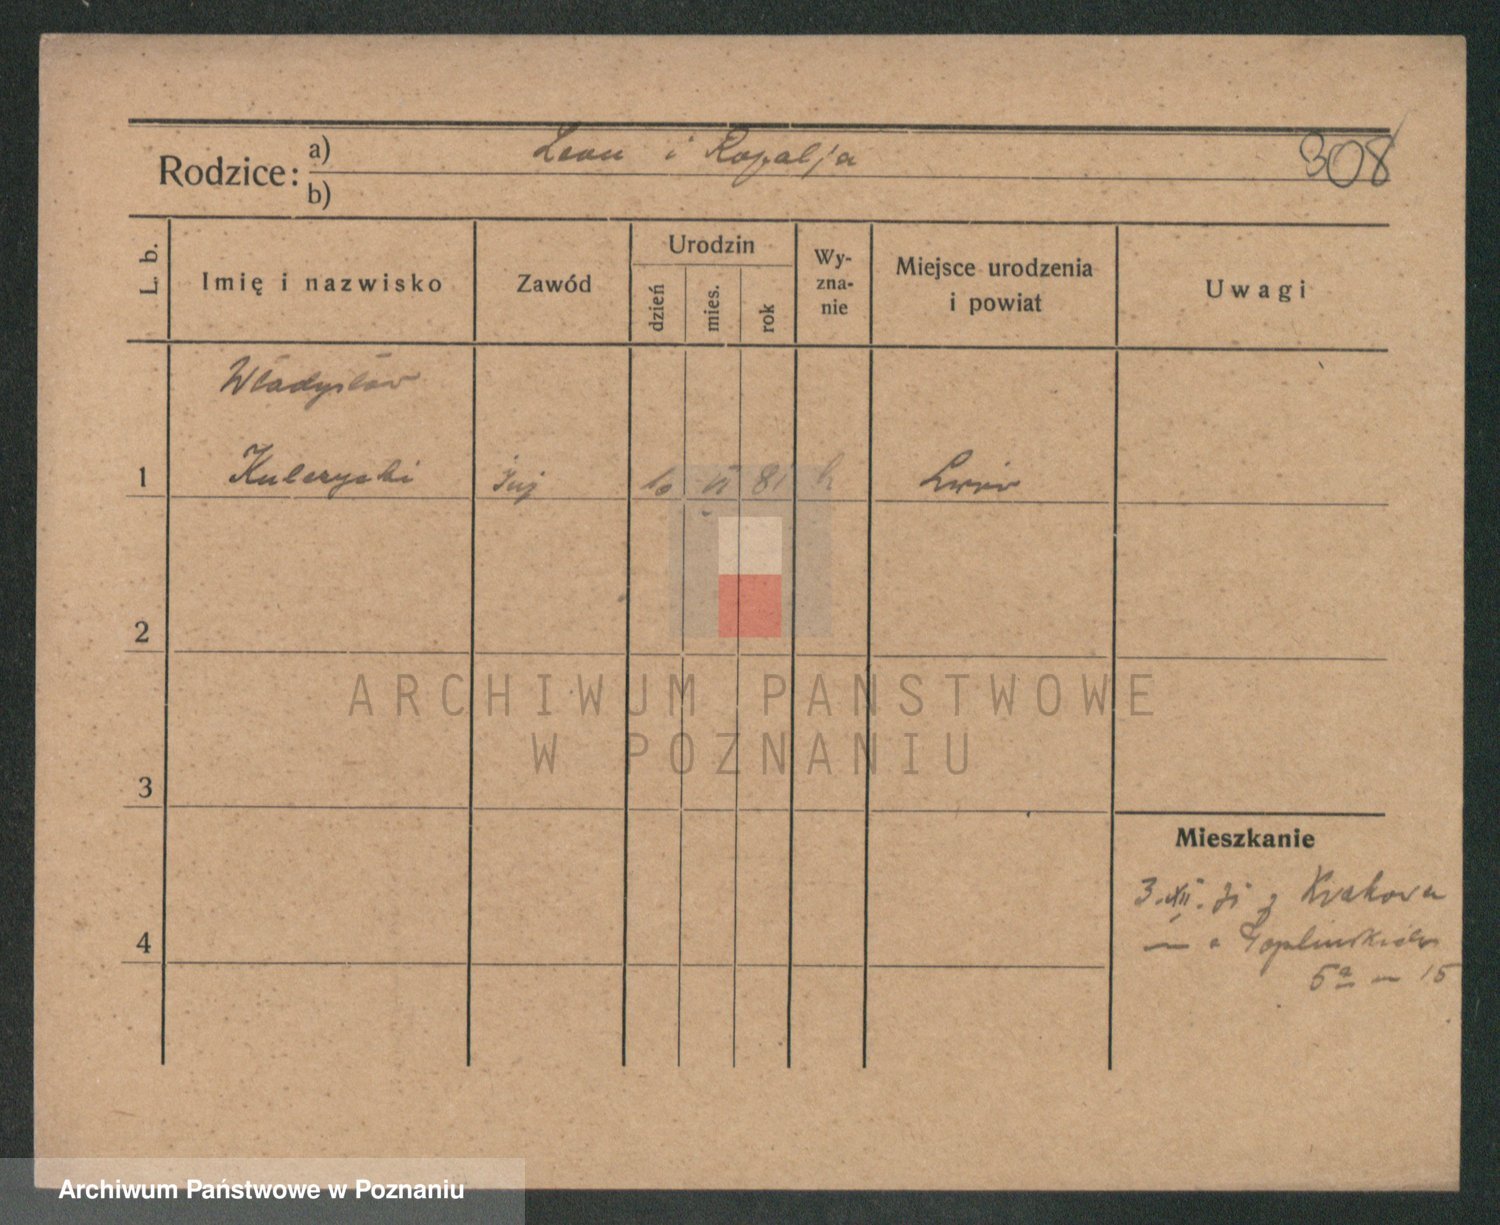 Rodzice: a) Leon i Rozalja 308
b)
L. b. Imię i nazwisko Zawód Urodzin dzień mies. rok Wy-zna-nie Miejsce urodzenia i powiat Uwagi
Władysław
1 Kulczycki inż 81 Lwów
2
3
4
Mieszkanie
3.XII. z Krakowa
5a – 15
ARCHIWUM PAŃSTWOWE
W POZNANIU
Archiwum Państwowe w Poznaniu